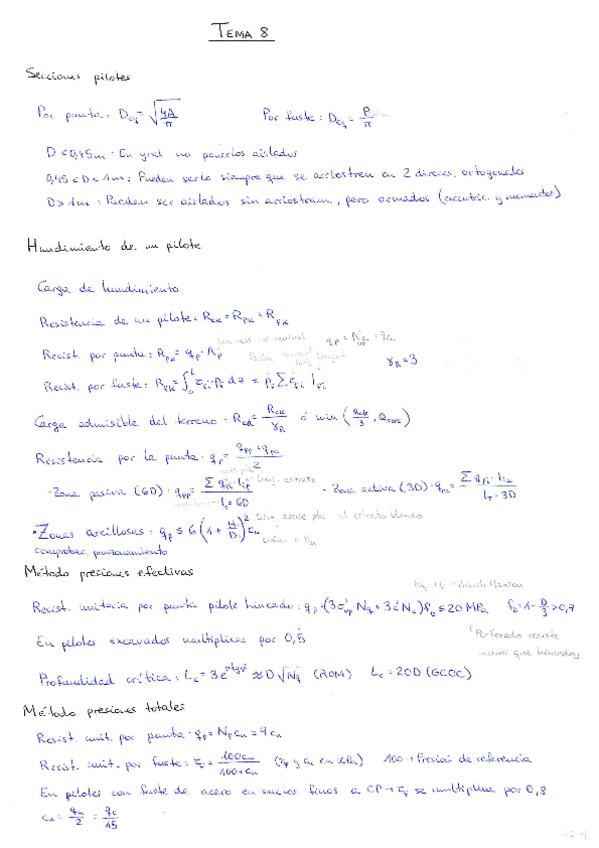 TEMA 8
Secciones pilotes
Por punta: Deq = √(4A/π)    Por fuste: Deq = P/π
D < 0,45m: En gral no ponerlos aislados
0,45 < D < 1m: Pueden serlo siempre que se arriostren en 2 direcc. ortogonales
D > 1m: Pueden ser aislados sin arriostram., pero armados (excentric. y momentos)
Hundimiento de un pilote
Carga de hundimiento
Resistencia de un pilote: Rck = Rpk + Rfk
Resist. por punta: Rpk = qp · Ap
γR = 3
Resist. por fuste: Rfk = ∫₀ᴸ τf · Pf dz = Pf Σ τfi lfi
Carga admisible del terreno: Rcd = Rck/γR ó min
Resistencia por la punta: qp = (qpp + qpa)/2
- Zona pasiva (6D): qpp =    - Zona activa (3D): qpa =
• Zonas arcillosas: qp ≤ 6(1 + H/D)² cu
comprobar punzonamiento
Método presiones efectivas
Resist. unitaria por punta pilote hincado: qp = (3σ'vp Nq + 3c'Nc) fD ≤ 20 MPa    fD = 1 - D/3 > 0,7
En pilotes excavados multiplicar por 0,5
Perforado resiste
menos que hincados
Profundidad crítica:    ≈ D√Nq (ROM)    Lc = 20D (GCOC)
Método presiones totales
Resist. unit. por punta: qp = Np cu = 9 cu
Resist. unit. por fuste: τf = 100cu/(100+cu) (τf y cu en kPa)    100 → Presión de referencia
En pilotes con fuste de acero en suelos finos a CP → τf se multiplica por 0,8
cu = qu/2 = qc/15